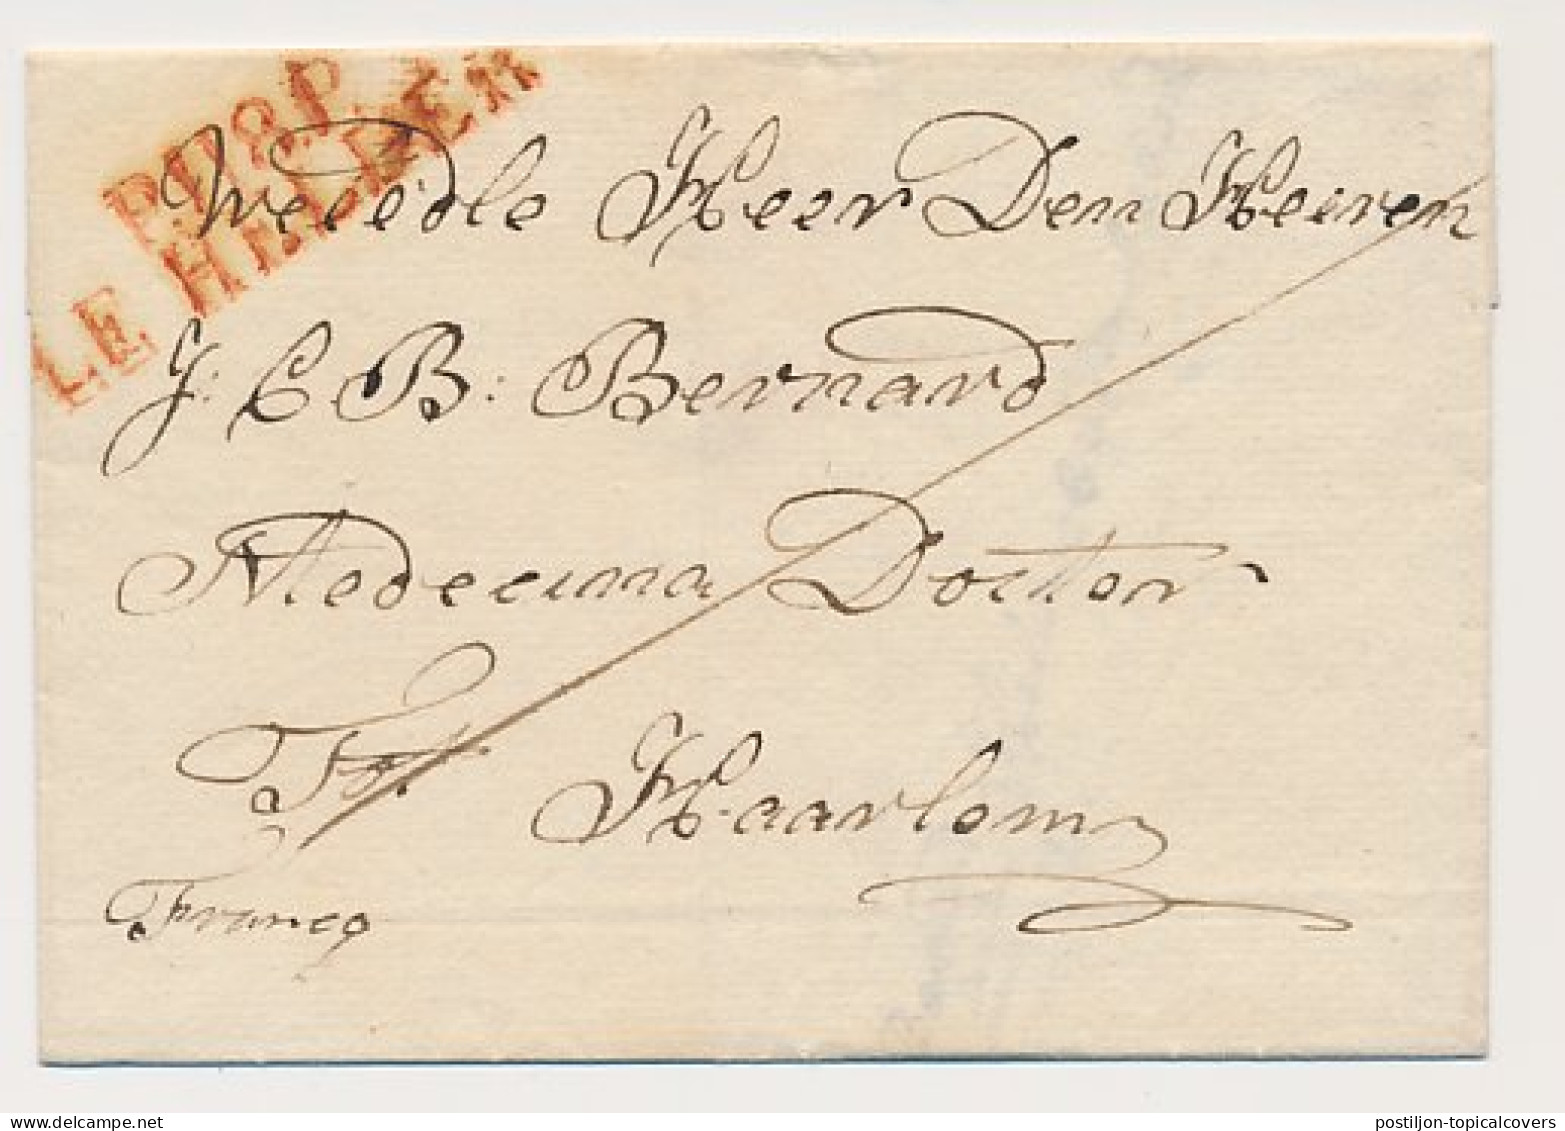 P.118.P.
LE HELDER
Weledle Heer Den Heeren
J: C. B: Bernard
Medecina Docter
Tot Haarlem
Franco
postiljon-topicalcovers